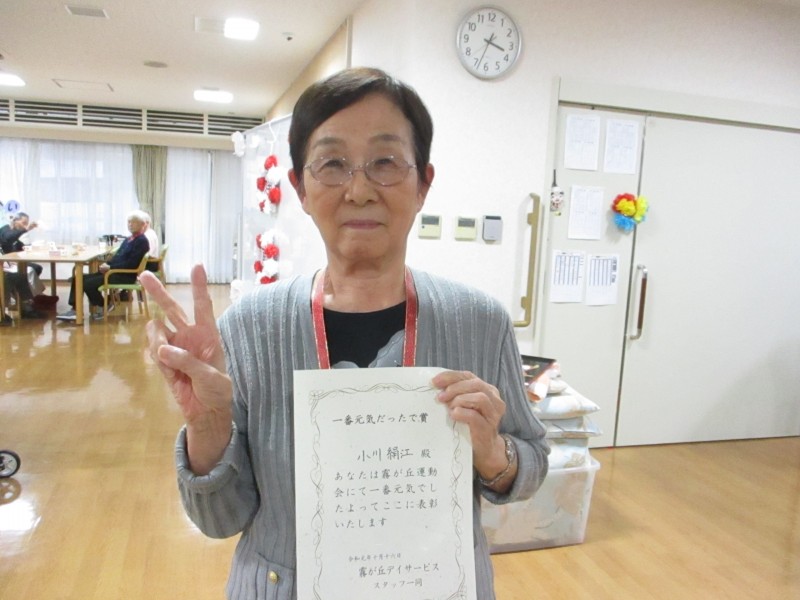 一番元気だったで賞
小川絹江 殿
あなたは霧が丘運動
会にて一番元気でし
たよってここに表彰
いたします
令和元年十月十六日
霧が丘デイサービス
スタッフ一同